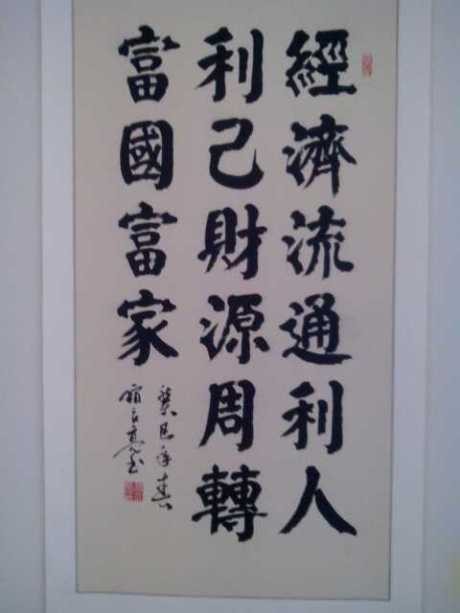 經濟流通利人
利己財源周轉
富國富家
癸巳年春